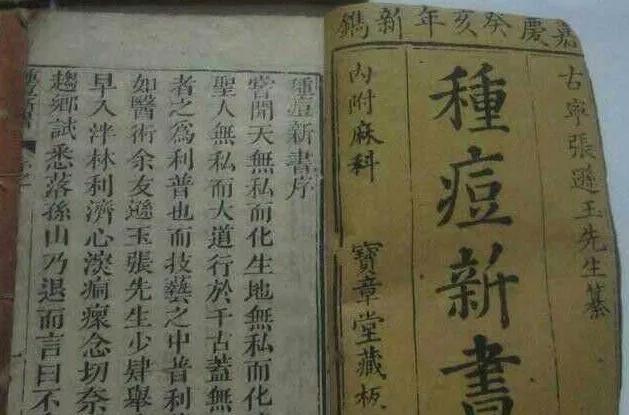 嘉慶癸亥年新鐫
古寧張遜玉先生纂
種痘新書
內附麻科
寶章堂藏板
種痘新書序
嘗聞天無私而化生地無私而化
聖人無私而大道行於千古蓋無
者之為利普也而技藝之中普利
如醫術余友遜玉張先生少肆舉
早入泮林利濟心深痌瘝念切奈
趨鄉試悉落孫山乃退而言曰不